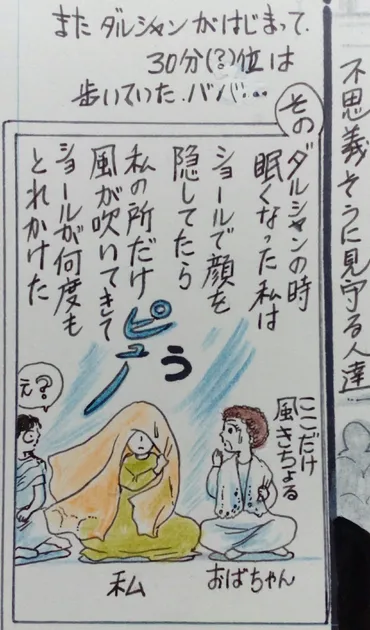 またダルシャンがはじまって、
30分(?)位は
歩いていた.ババ…
その
ダルシャンの時
眠くなった私は
ショールで顔を
隠してたら
私の所だけ
風が吹いてきて
ショールが何度も
とれかけた
ピューっ
え?
ここだけ
風きちょる
私
おばちゃん
不思議そうに見守る人達